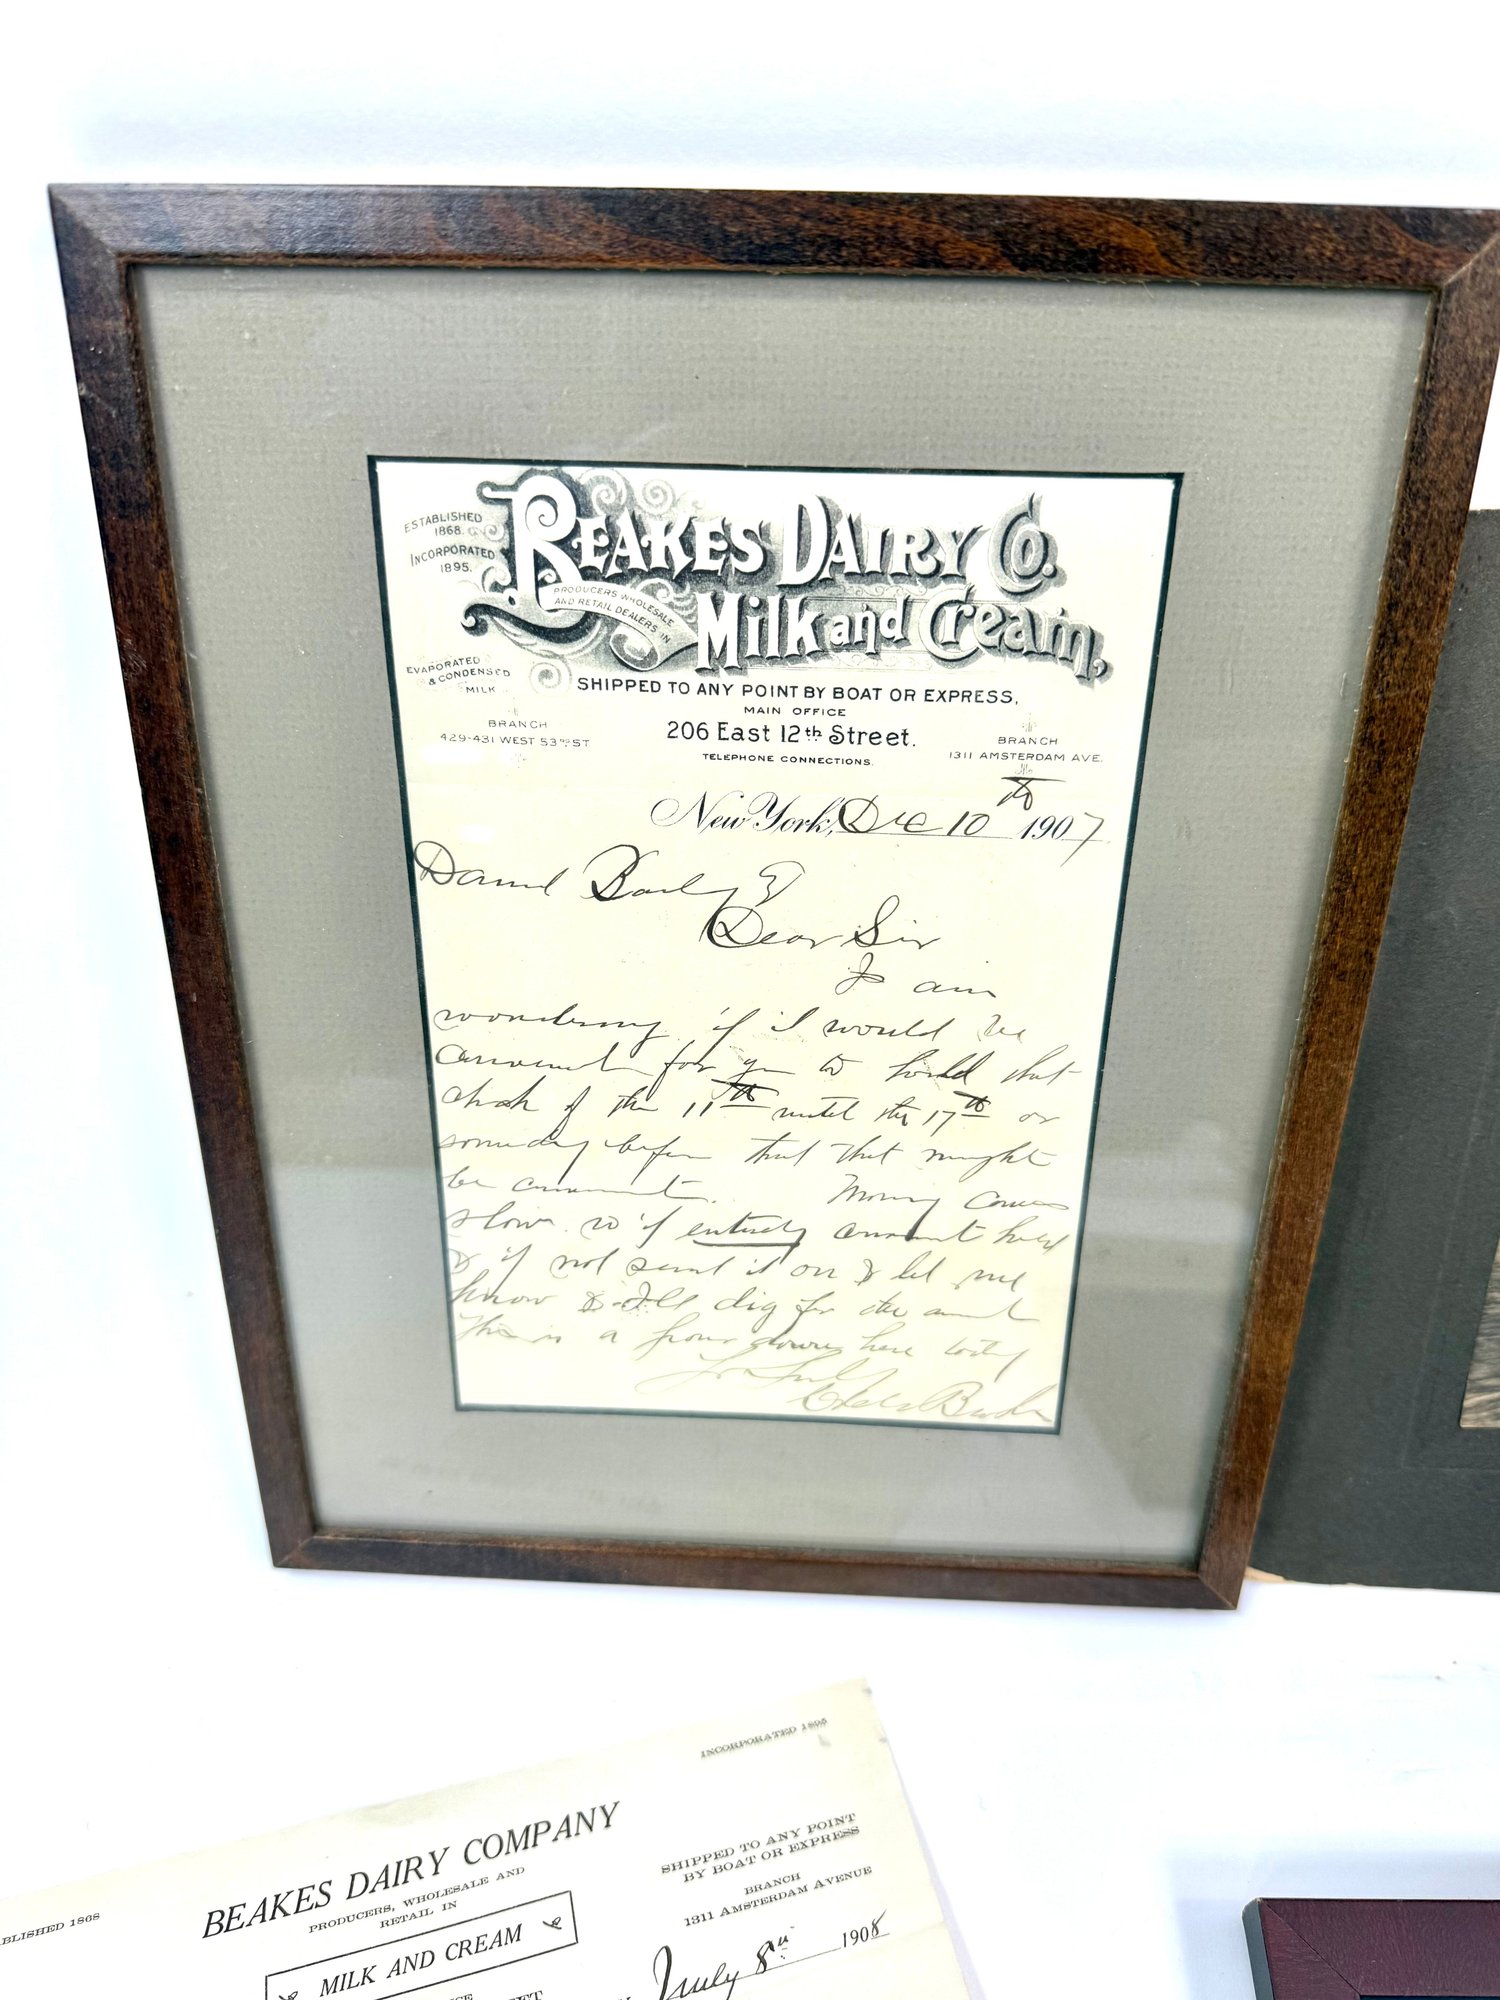 ESTABLISHED
1868.
INCORPORATED
1895.
BEAKES DAIRY Co.
PRODUCERS WHOLESALE
AND RETAIL DEALERS IN
Milk and Cream,
EVAPORATED
& CONDENSED
MILK
SHIPPED TO ANY POINT BY BOAT OR EXPRESS,
MAIN OFFICE
206 East 12th Street.
TELEPHONE CONNECTIONS.
BRANCH
429-431 WEST 53RD ST
BRANCH
1311 AMSTERDAM AVE.
New York, Dec 10th 1907
Dear Sir
I am
wondering if I would be
convenient for you to hold that
check of the 11th until the 17th or
someday before that that might
be convenient. Money comes
slow so if entirely convenient hold
& if not send it on & let me
know & I'll dig for the amt
This is a from down here today
INCORPORATED 1895
BLISHED 1868
BEAKES DAIRY COMPANY
PRODUCERS, WHOLESALE AND
RETAIL IN
MILK AND CREAM
SHIPPED TO ANY POINT
BY BOAT OR EXPRESS
BRANCH
1311 AMSTERDAM AVENUE
July 8th 1908